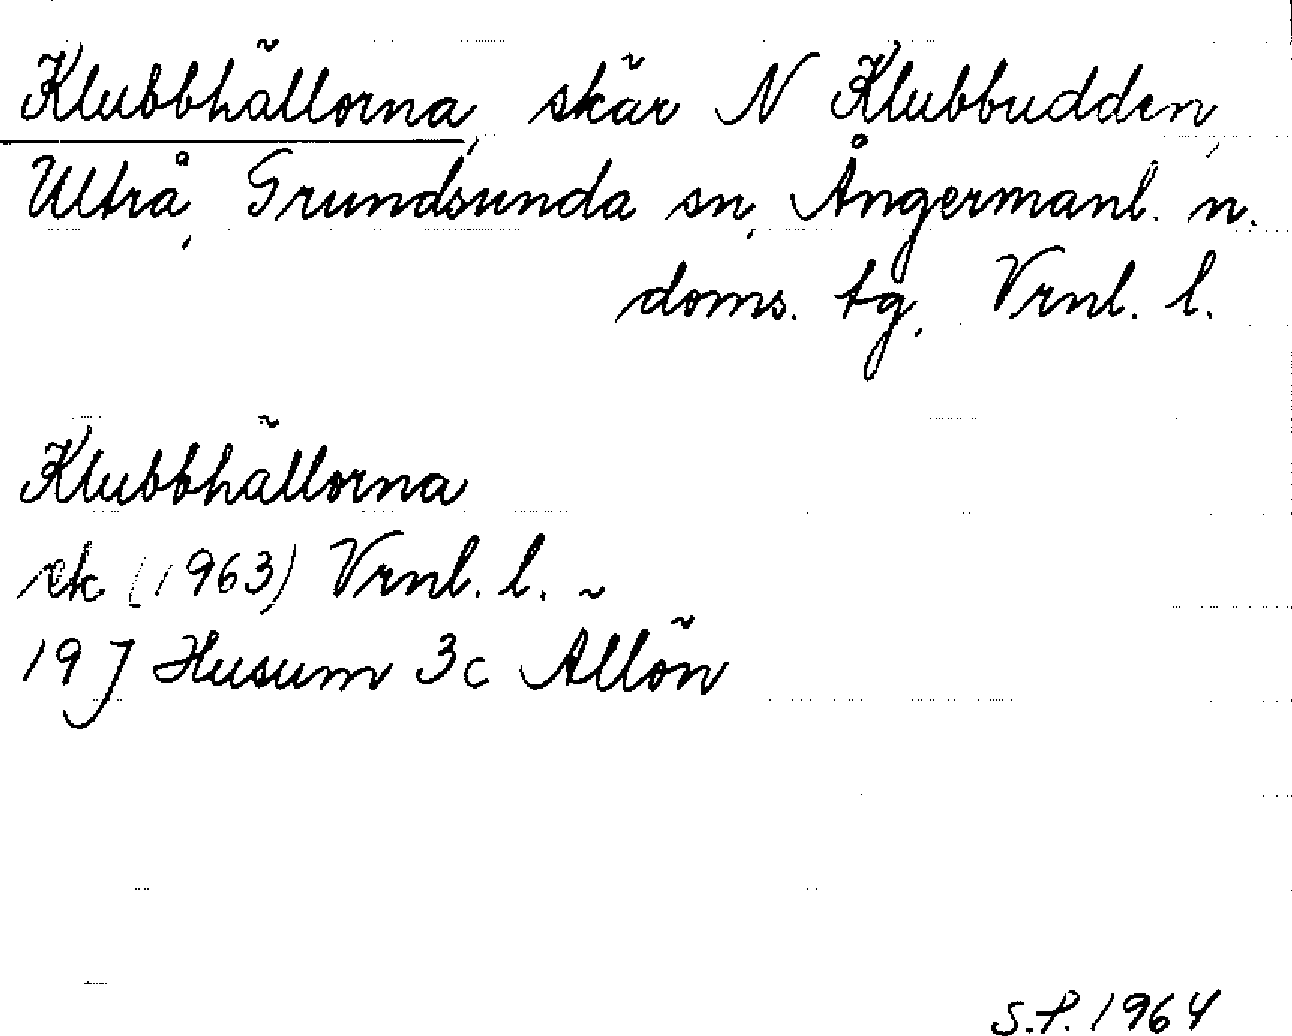 Klubbhällorna, skär N Klubbudden,
Ultrå, Grundsunda sn, Ångermanl. n.
doms. tg, Vrnl. l.
Klubbhällorna
ek (1963) Vrnl. l.
19 J Husum 3c Ällön
S.P. 1964